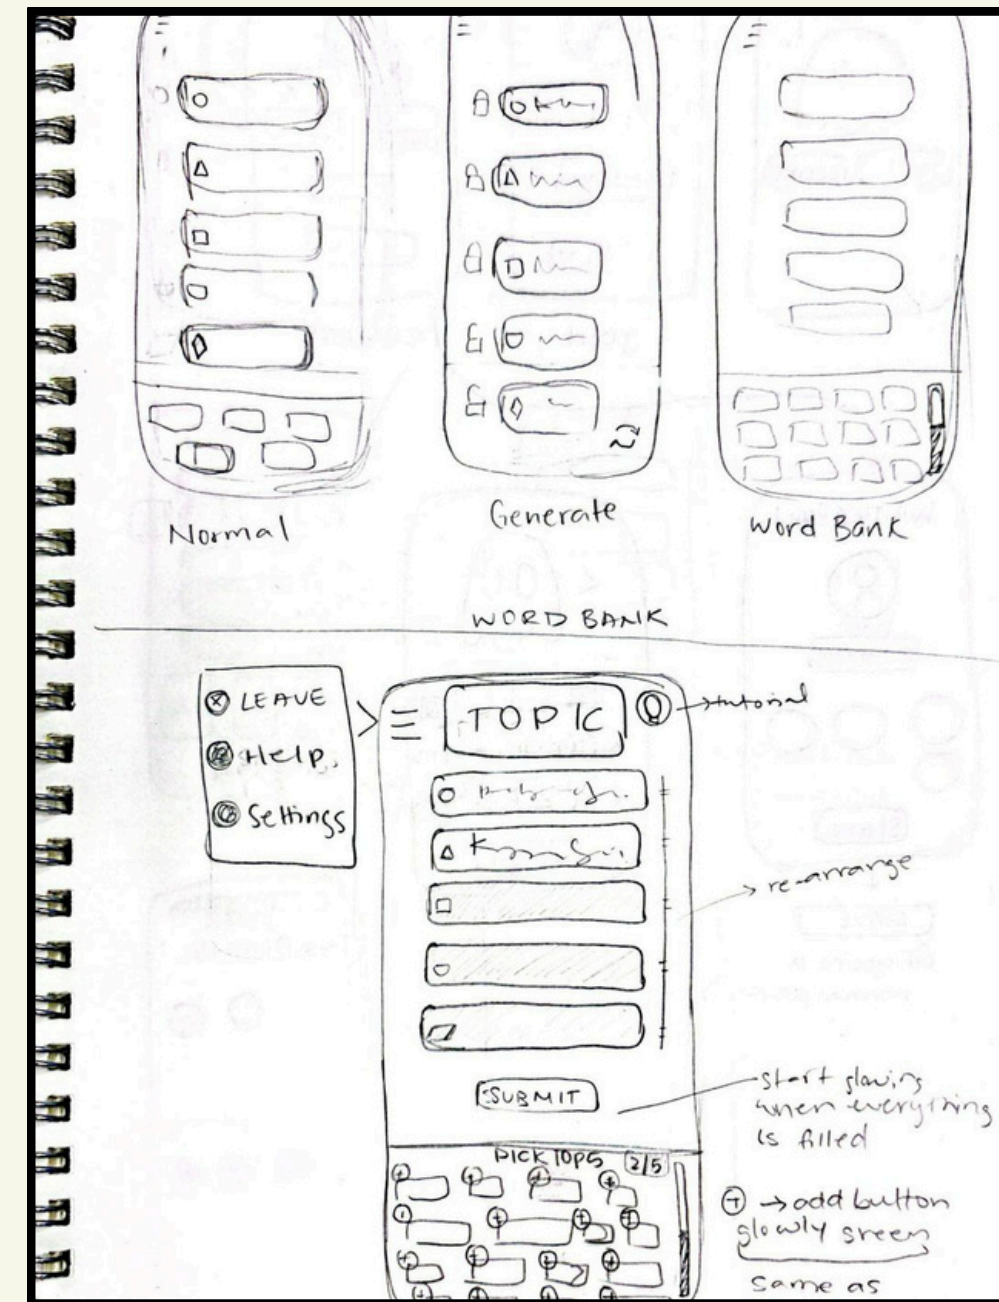 Normal
Generate
Word Bank
WORD BANK
LEAVE
Help
Settings
TOPIC
→ tutorial
→ re-arrange
SUBMIT
start glowing
when everything
is filled
PICK TOP5 2/5
+ → add button
glowly green
same as